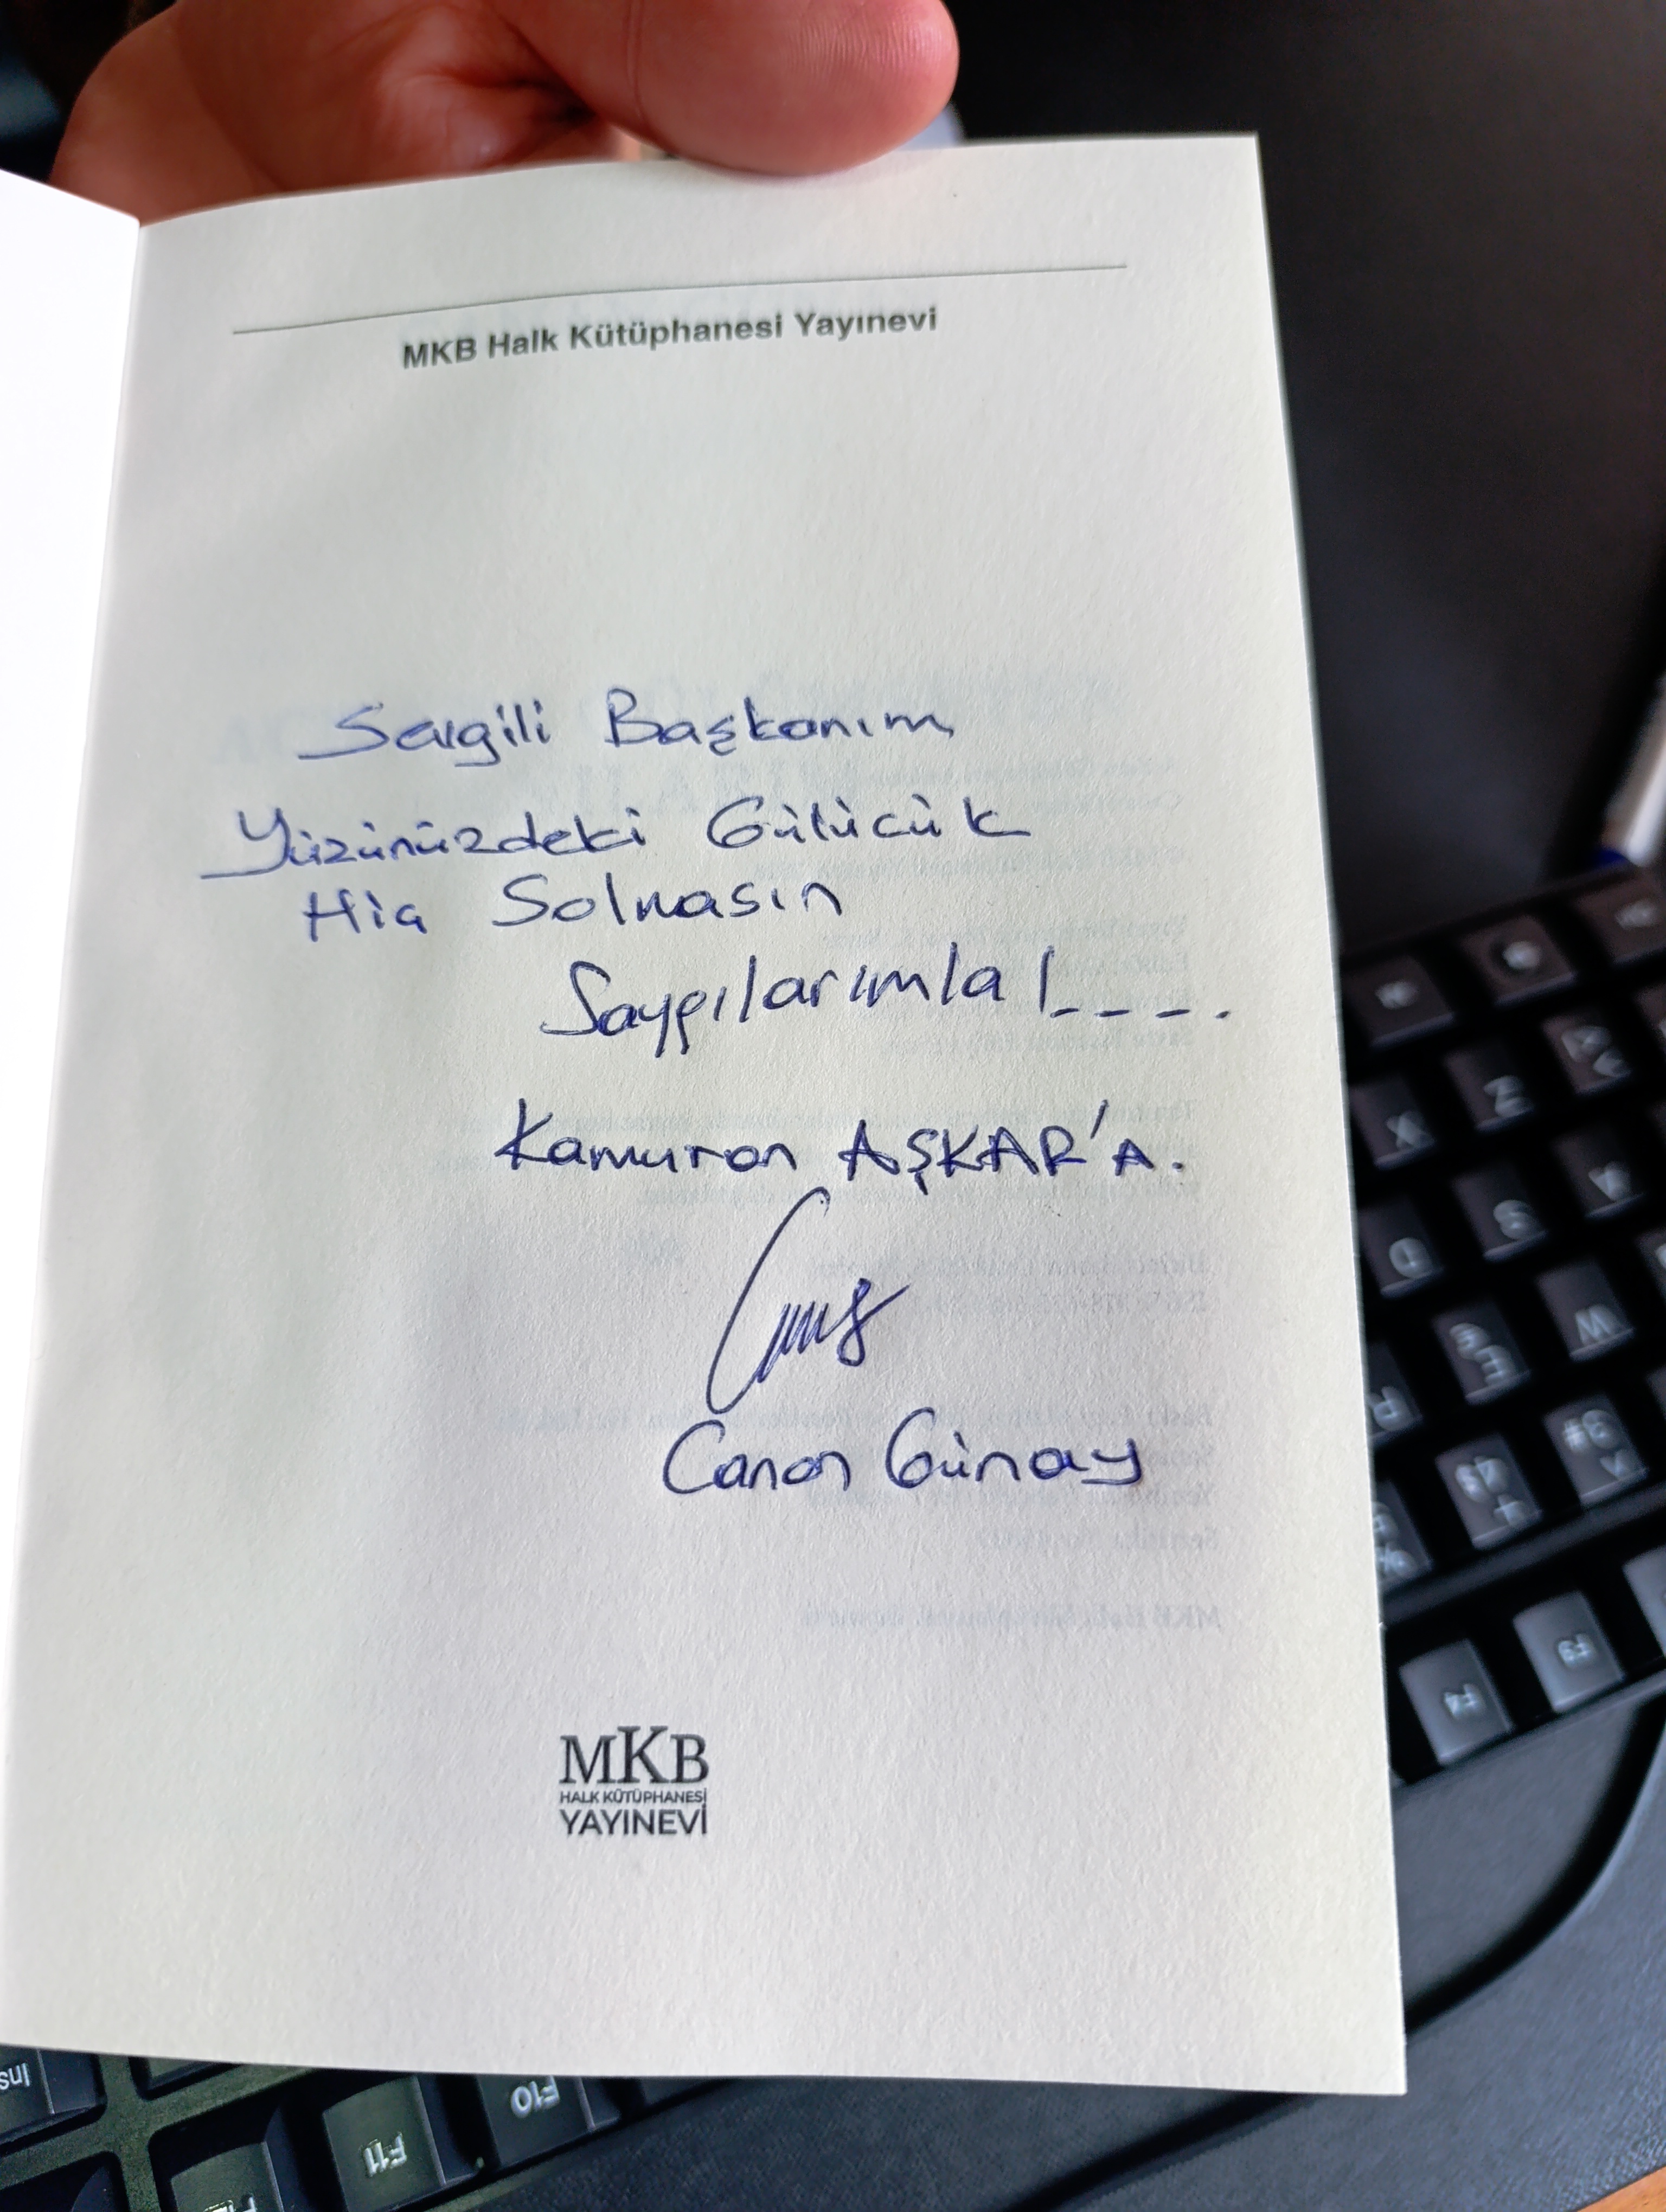 MKB Halk Kütüphanesi Yayınevi
Sevgili Başkanım
Yüzünüzdeki Gülücük
Hiç Solmasın
Saygılarımla!_ _ _ _.
Kamuran AŞKAR'A.
Canan Günay
MKB
HALK KÜTÜPHANESİ
YAYINEVİ
Ins
F11
F10
F4
F3
X
Z
D
S
A
E
W
R